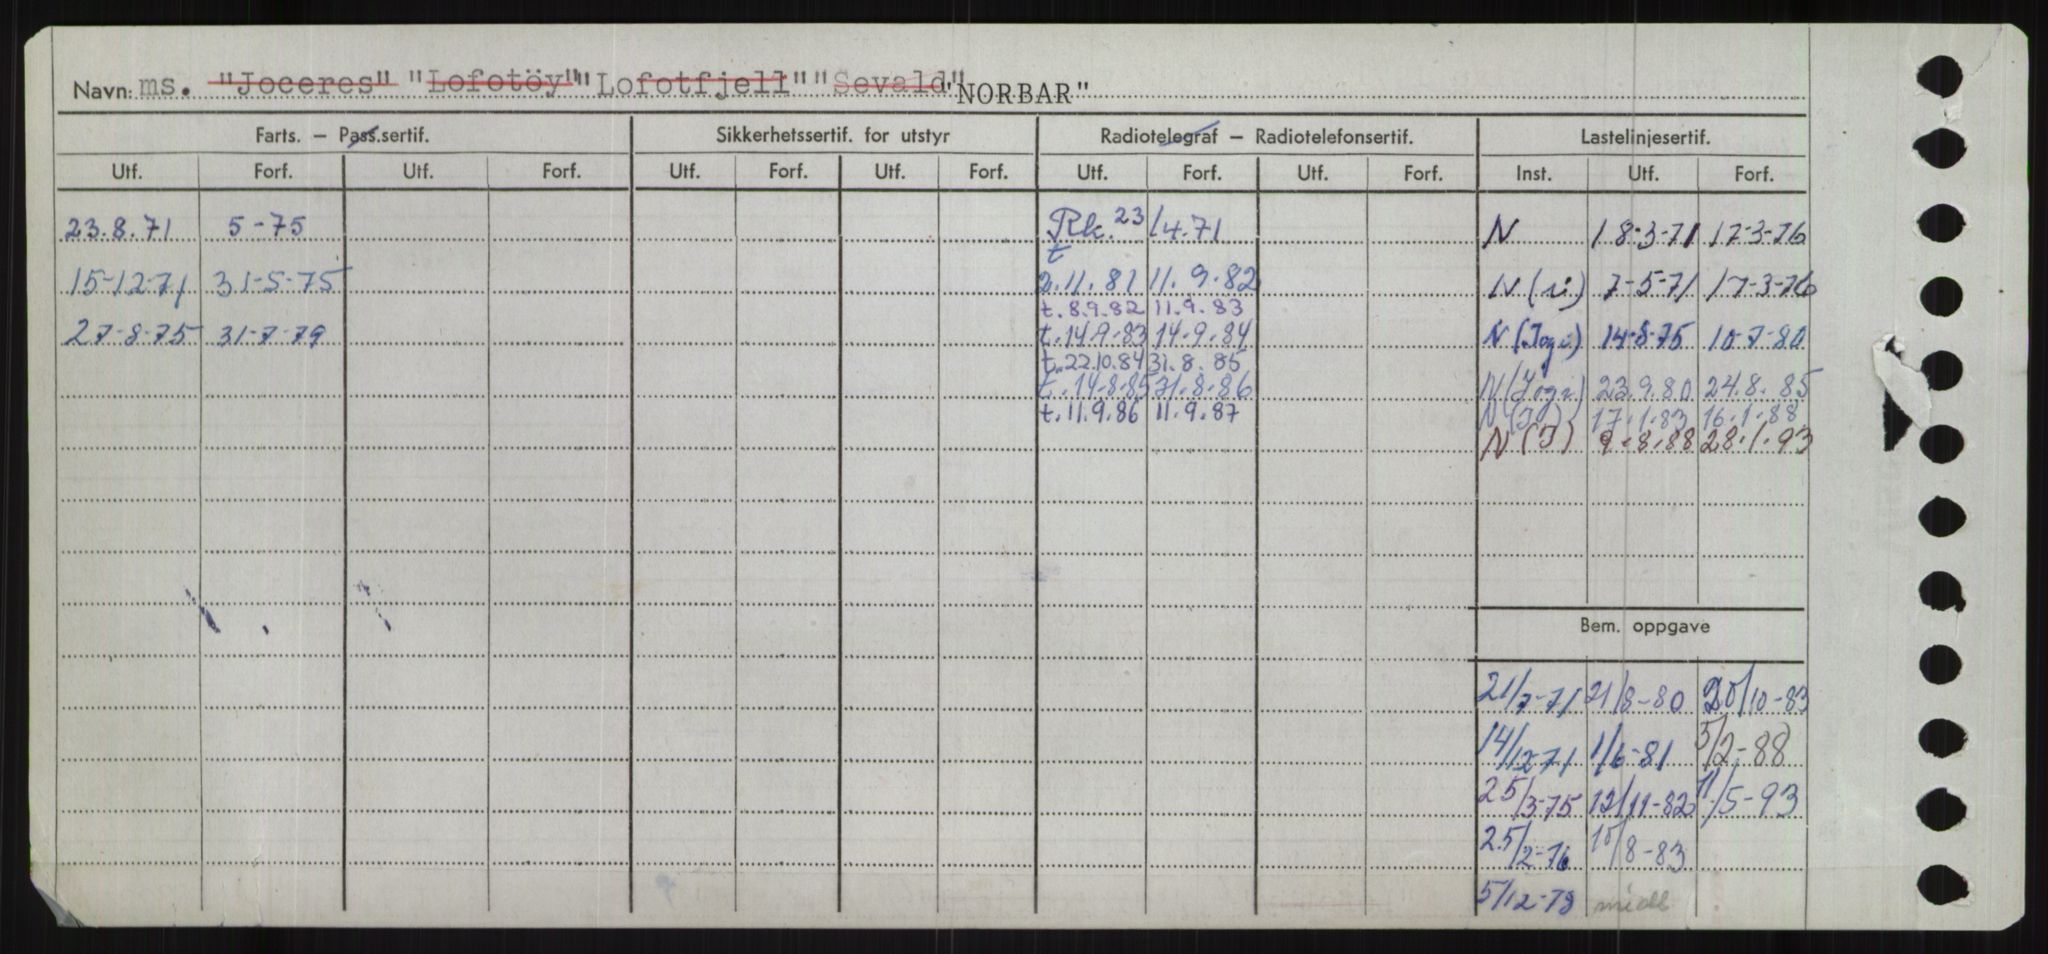 Navn: ms. "Joceres" "Lofotöy" "Lofotfjell" "Sevald" "NORBAR"
Farts. – Pass.sertif. Sikkerhetssertif. for utstyr Radiotelegraf – Radiotelefonsertif. Lastelinjesertif.
Utf. Forf. Utf. Forf. Utf. Forf. Utf. Forf. Utf. Forf. Utf. Forf. Inst. Utf. Forf.
23.8.71 5-75 Rk. 23/4.71 N 18-3-71 17-3-76
t
15-12-71 31-5-75 2.11.81 11.9.82 N (i) 7-5-71 17-3-76
t. 8.9.82 11.9.83
27-8-75 31-7-79 t. 14.9.83 14.9.84 N (I og i) 14-8-75 10-7-80
t. 22.10.84 31.8.85
t. 14-8-85 31-8-86 N (I og i) 23.9.80 24.8.85
t. 11.9.86 11.9.87 N (I) 17.1.83 16.1.88
N (I) 9.8.88 28.1.93
Bem. oppgave
21/7-71 21/8-80 20/10-83
14/12-71 1/6-81 5/2-88
25/3-75 12/11-82 11/5-93
25/2-76 10/8-83
5/12-79